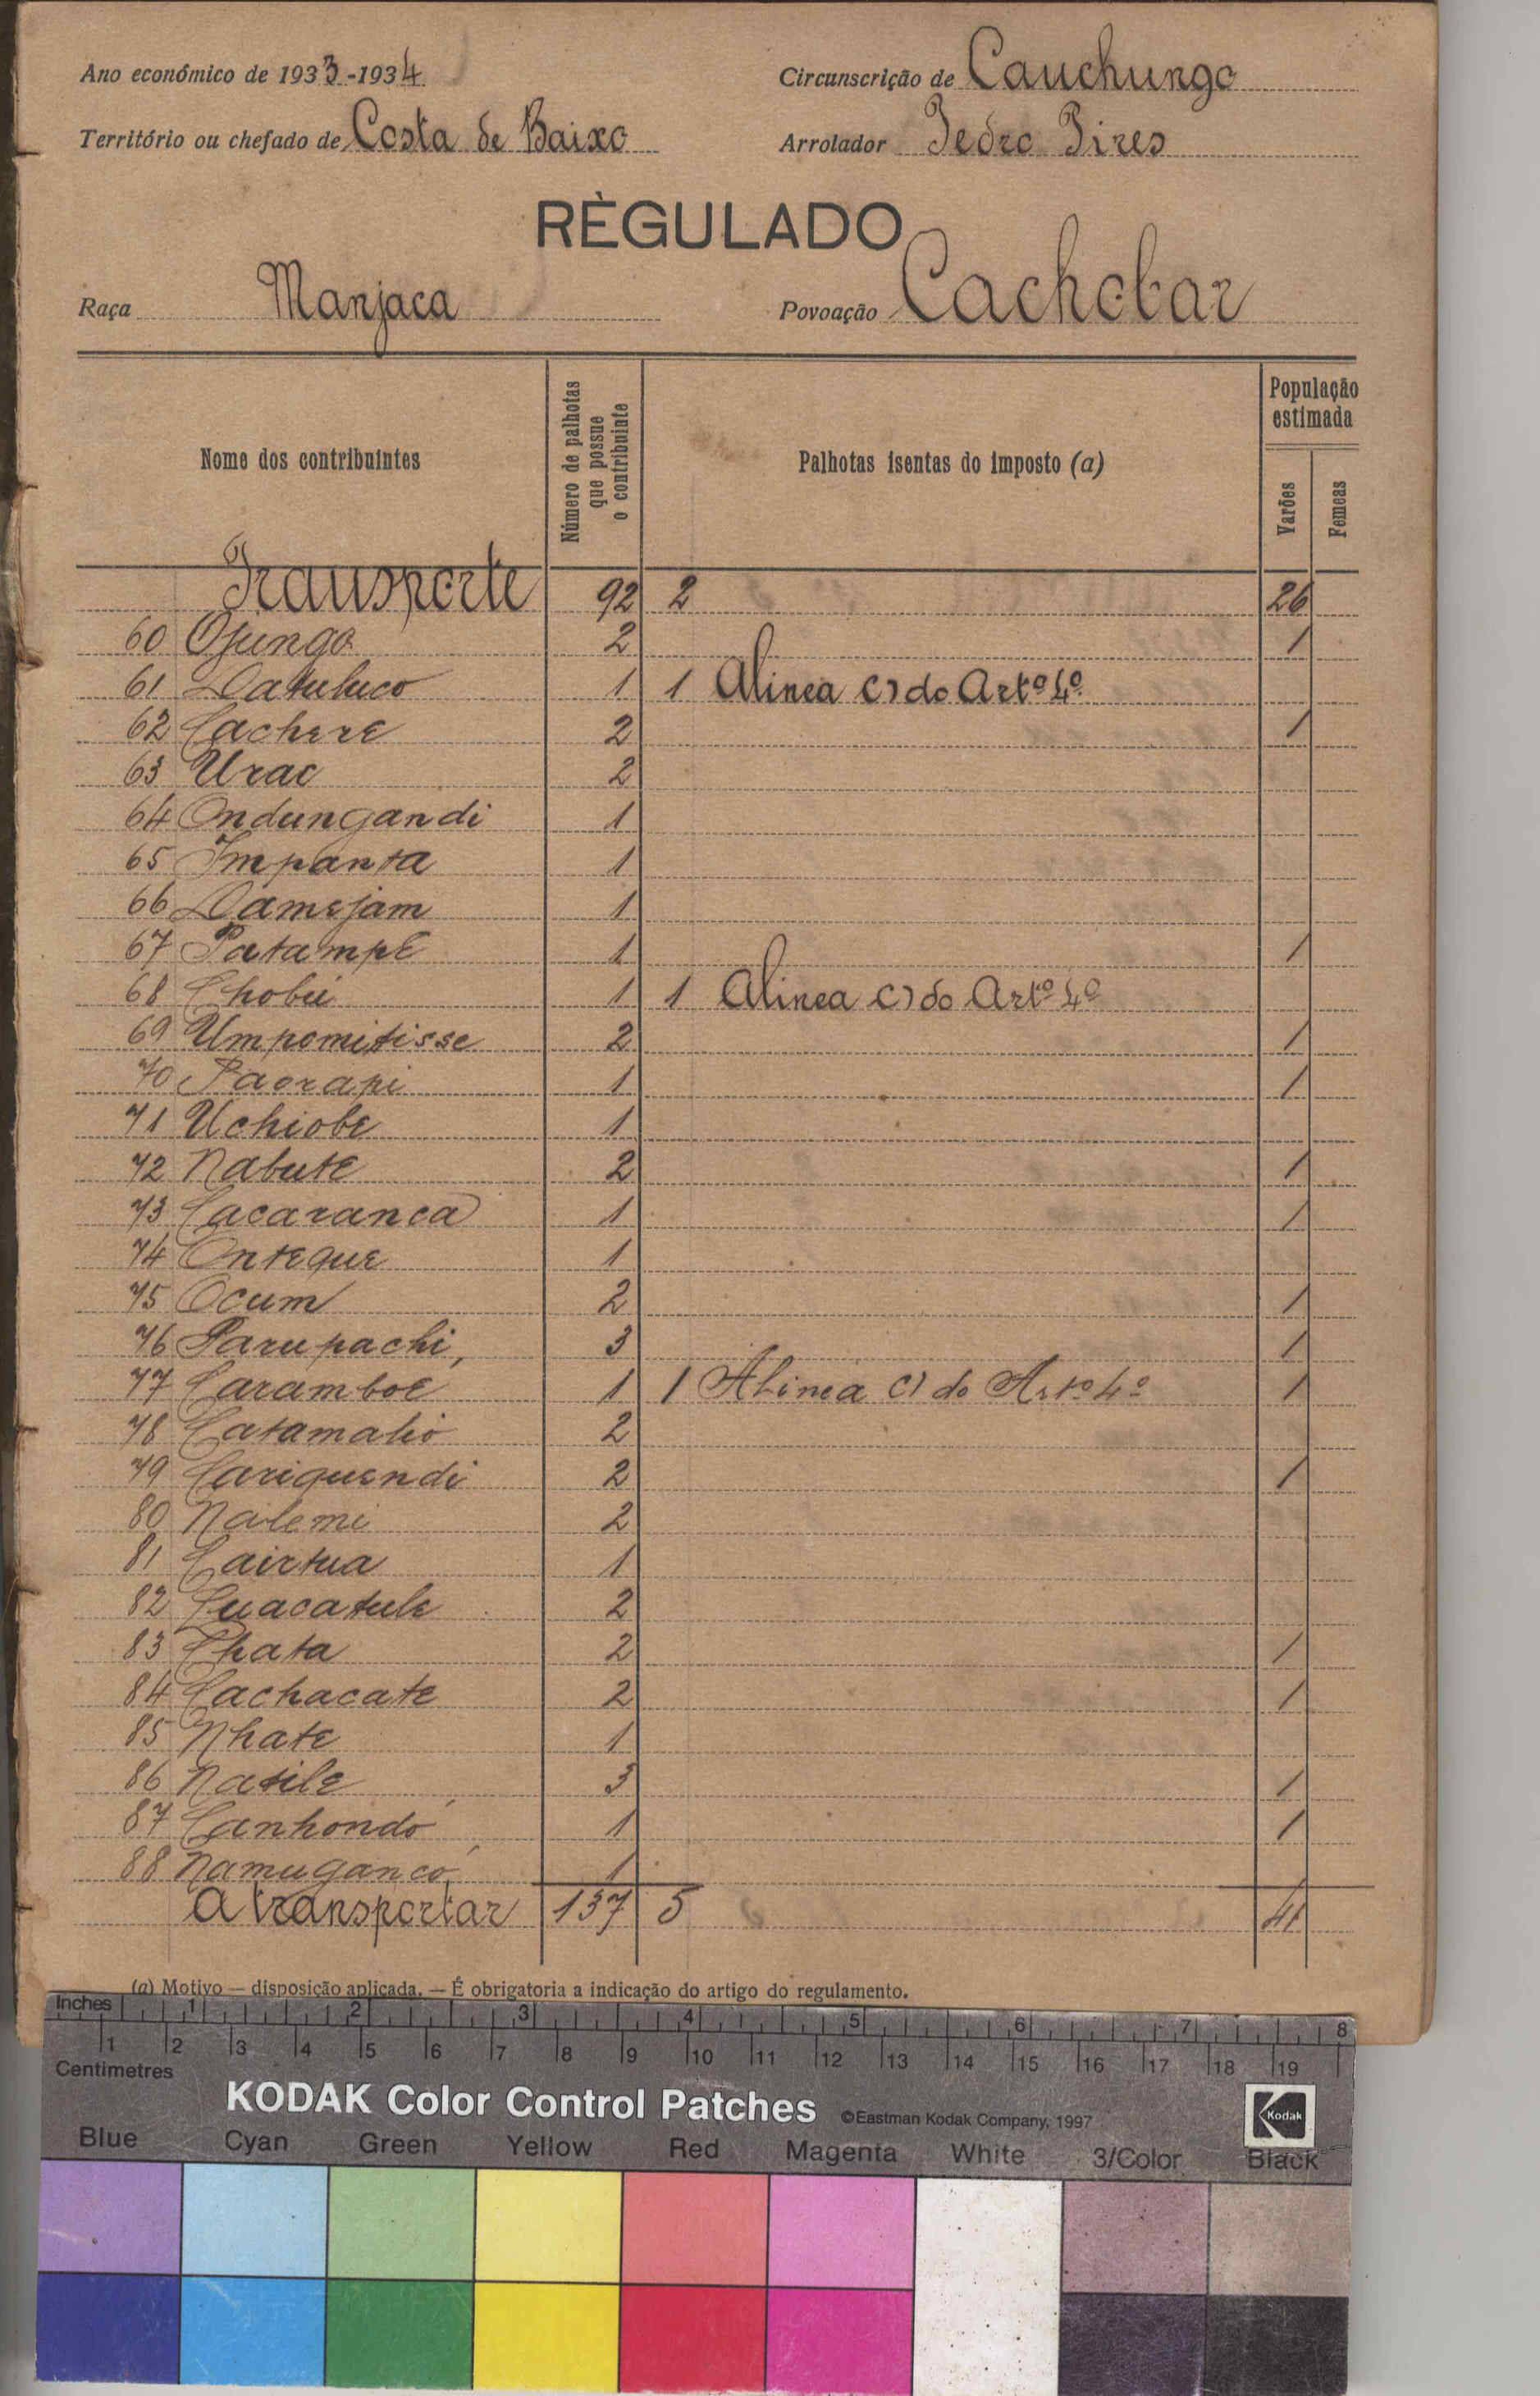 Ano económico de 1933-1934 Circunscrição de Cauchungo
Território ou chefado de Costa de Baixo Arrolador Pedro Pires
RÈGULADO
Raça Manjaca Povoação Cachobar
Nome dos contribuintes
Número de palhotas que possue o contribuinte
Palhotas isentas do imposto (a)
População estimada
Varões
Femeas
Transporte 92 2 26
60 Ojungo 2 1
61 Datuluco 1 1 Alinea c) do Artº 4º
62 Cachere 2 1
63 Urac 2
64 Ondungandi 1
65 Impanta 1
66 Damejam 1
67 Patampé 1 1
68 Chobú 1 1 Alinea c) do Artº 4º
69 Umpomitisse 2 1
70 Paorapi 1 1
71 Uchiobe 1
72 Nabute 2 1
73 Cacaranca 1 1
74 Onteque 1
75 Ocum 2 1
76 Parupachi 3 1
77 Caramboé 1 1 Alinea c) do Artº 4º 1
78 Catamalió 2
79 Cariquendi 2 1
80 Nalemi 2
81 Cairtua 1
82 Quacatule 2
83 Chata 2 1
84 Cachacate 2 1
85 Nhate 1
86 Natile 3 1
87 Canhondó 1 1
88 Namugancó 1
A transportar 137 5 41
(a) Motivo — disposição aplicada. — É obrigatoria a indicação do artigo do regulamento.
Inches 1 2 3 4 5 6 7 8
1 2 3 4 5 6 7 8 9 10 11 12 13 14 15 16 17 18 19
Centimetres
KODAK Color Control Patches ©Eastman Kodak Company, 1997 Kodak
Blue Cyan Green Yellow Red Magenta White 3/Color Black